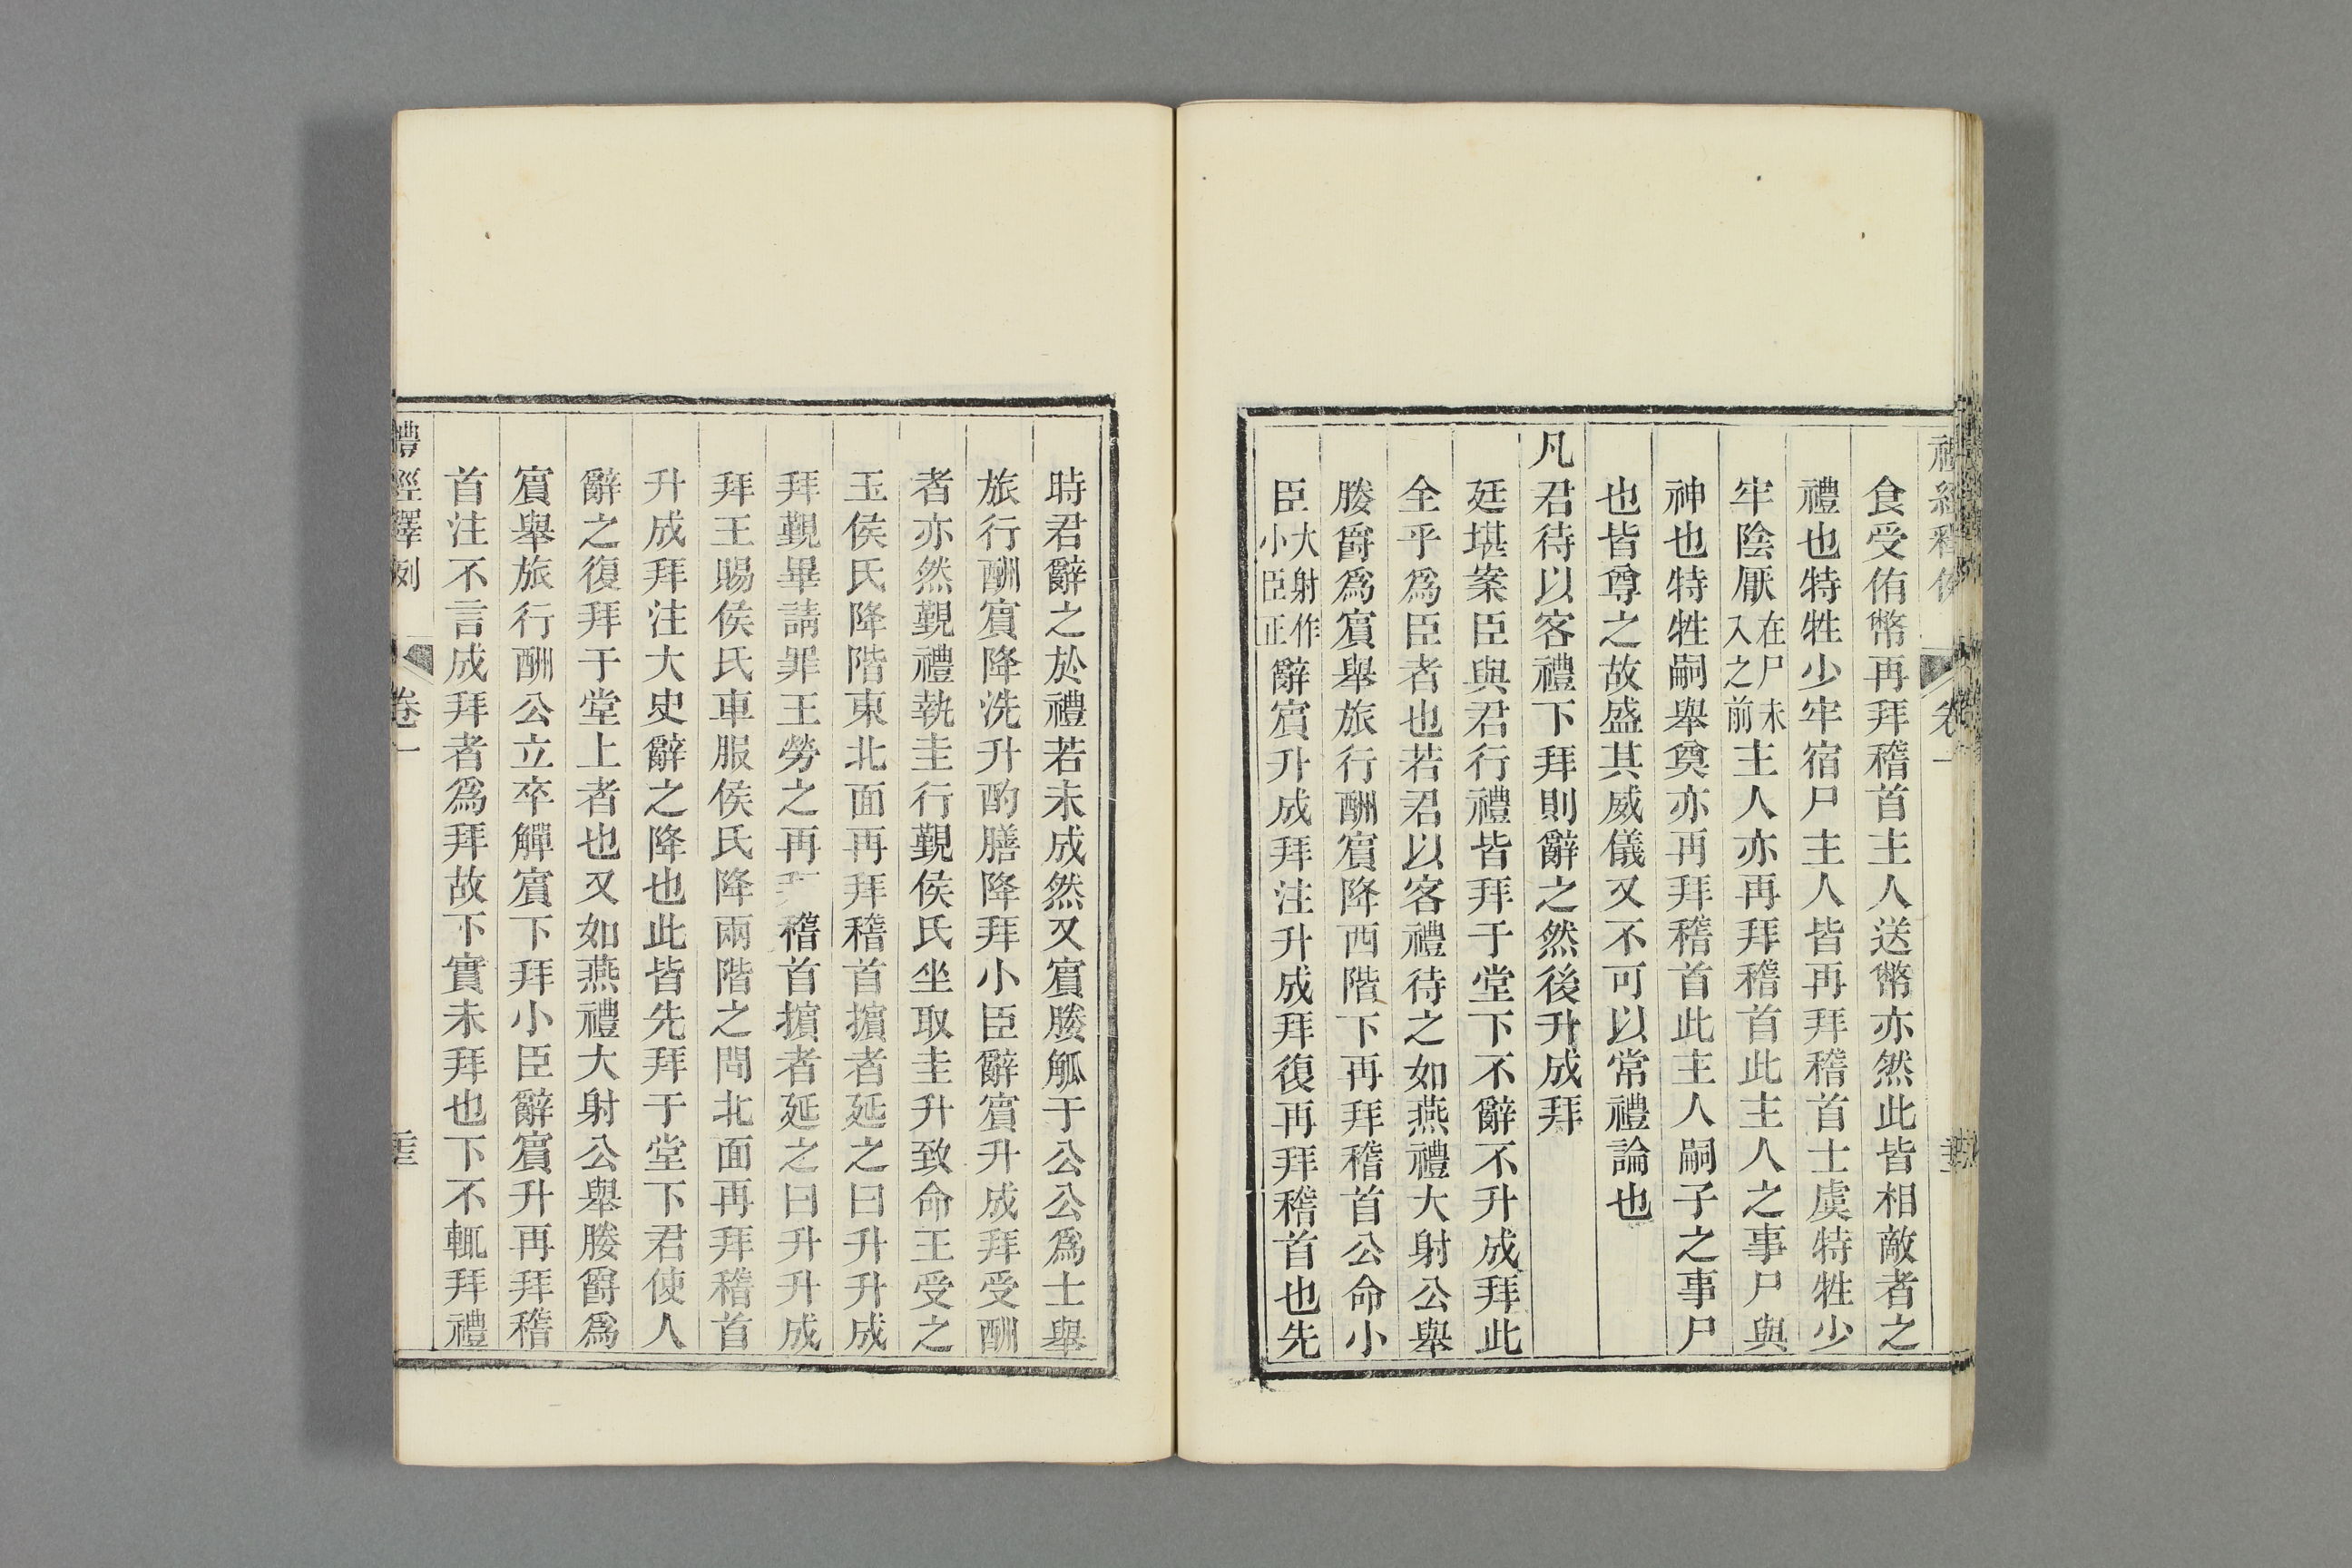 食受侑幣再拜稽首主人送幣亦然此皆相敵者之
禮也特牲少牢宿尸主人皆再拜稽首士虞特牲少
牢陰厭在尸未入之前主人亦再拜稽首此主人之事尸與
神也特牲嗣舉奠亦再拜稽首此主人嗣子之事尸
也皆尊之故盛其威儀又不可以常禮論也
凡君待以客禮下拜則辭之然後升成拜
廷堪案臣與君行禮皆拜于堂下不辭不升成拜此
全乎爲臣者也若君以客禮待之如燕禮大射公舉
媵爵爲賔舉旅行酬賔降西階下再拜稽首公命小
臣大射作小臣正辭賔升成拜注升成拜復再拜稽首也先
時君辭之於禮若未成然又賔媵觚于公公爲士舉
旅行酬賔降洗升酌膳降拜小臣辭賔升成拜受酬
者亦然覲禮執圭行覲侯氏坐取圭升致命王受之
玉侯氏降階東北面再拜稽首擯者延之曰升升成
拜覲畢請罪王勞之再稽首擯者延之曰升升成
拜王賜侯氏車服侯氏降兩階之間北面再拜稽首
升成拜注大史辭之降也此皆先拜于堂下君使人
辭之復拜于堂上者也又如燕禮大射公舉媵爵爲
賔舉旅行酬公立卒觶賔下拜小臣辭賔升再拜稽
首注不言成拜者爲拜故下實未拜也下不輒拜禮
禮經釋例
卷一